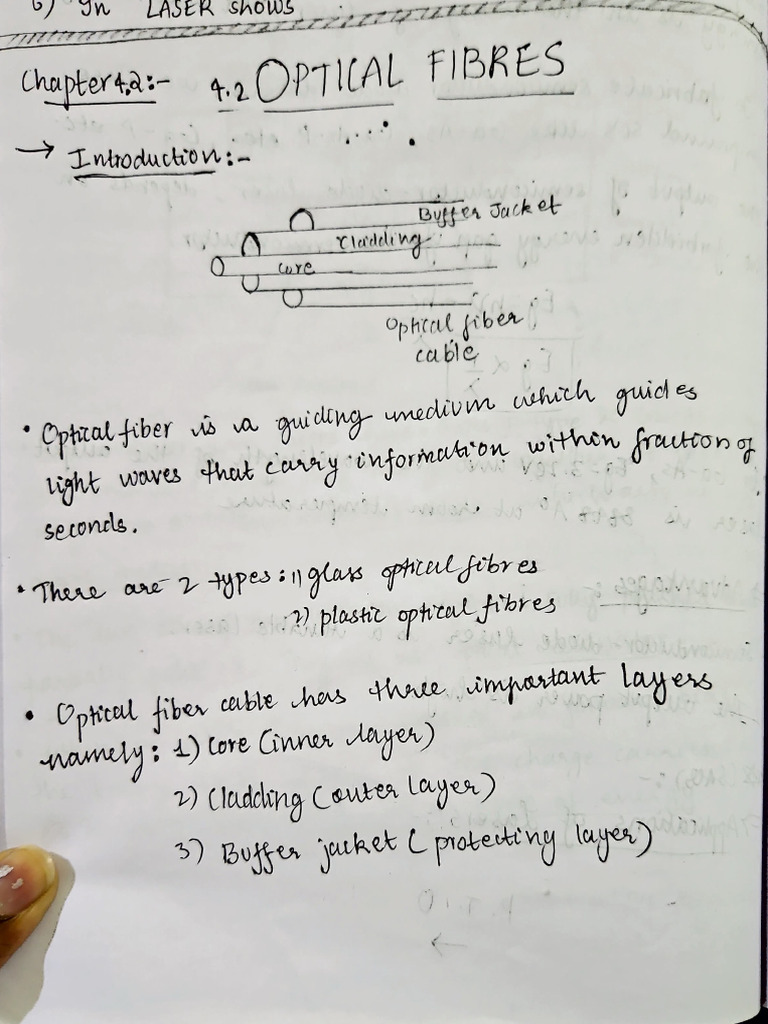 6) In LASER shows
Chapter 4.2:- 4.2 OPTICAL FIBRES
→ Introduction:-
Buffer Jacket
cladding
core
Optical fiber
cable
• Optical fiber is a guiding medium which guides
light waves that carry information within fraction of
seconds.
• There are 2 types: 1) glass optical fibres
2) plastic optical fibres
• Optical fiber cable has three important layers
namely: 1) core (inner layer)
2) Cladding (outer layer)
3) Buffer jacket (protecting layer)